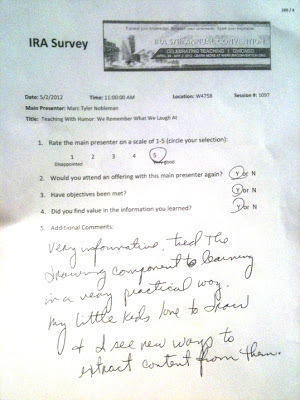 IRA Survey
IRA 57TH ANNUAL CONVENTION
CELEBRATING TEACHING | CHICAGO
Date: 5/2/2012 Time: 11:00:00 AM Location: W475B Session #: 1097
Main Presenter: Marc Tyler Nobleman
Title: Teaching With Humor: We Remember What We Laugh At
1. Rate the main presenter on a scale of 1-5 (circle your selection):
1 2 3 4 5
Disappointed Very good
2. Would you attend an offering with this main presenter again? Y or N
3. Have objectives been met? Y or N
4. Did you find value in the information you learned? Y or N
5. Additional Comments:
Very informative, tied the
drawing component to learning
in a very practical way.
My little kids love to draw
& I see new ways to
extract content from them.